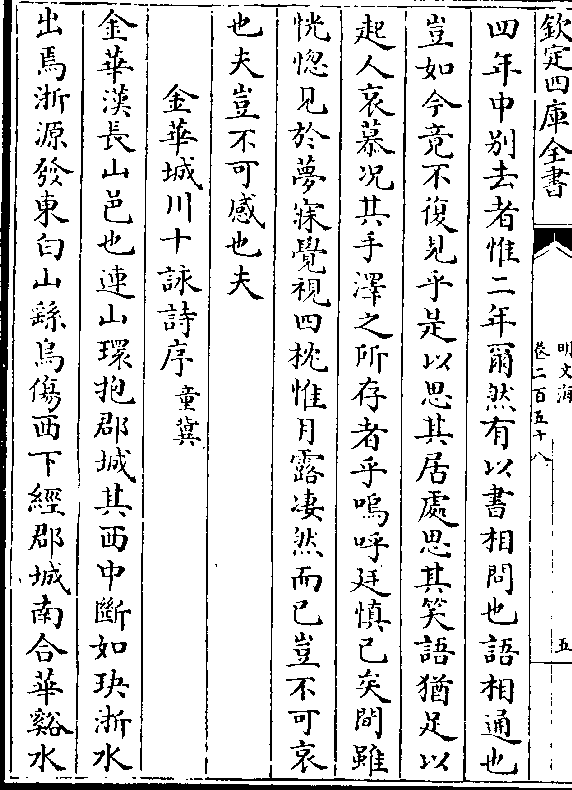 欽定四庫全書
明文海
卷二百五十八
五
四年中别去者惟二年爾然有以書相問也語相通也
豈如今竟不復見乎是以思其居處思其笑語猶足以
起人哀慕况其手澤之所存者乎嗚呼廷慎已矣間雖
恍惚見於夢寐覺視四枕惟月露凄然而已豈不可哀
也夫豈不可感也夫
金華城川十詠詩序童冀
金華漢長山邑也連山環抱郡城其西中斷如玦浙水
出焉浙源發東白山繇烏傷西下經郡城南合華谿水